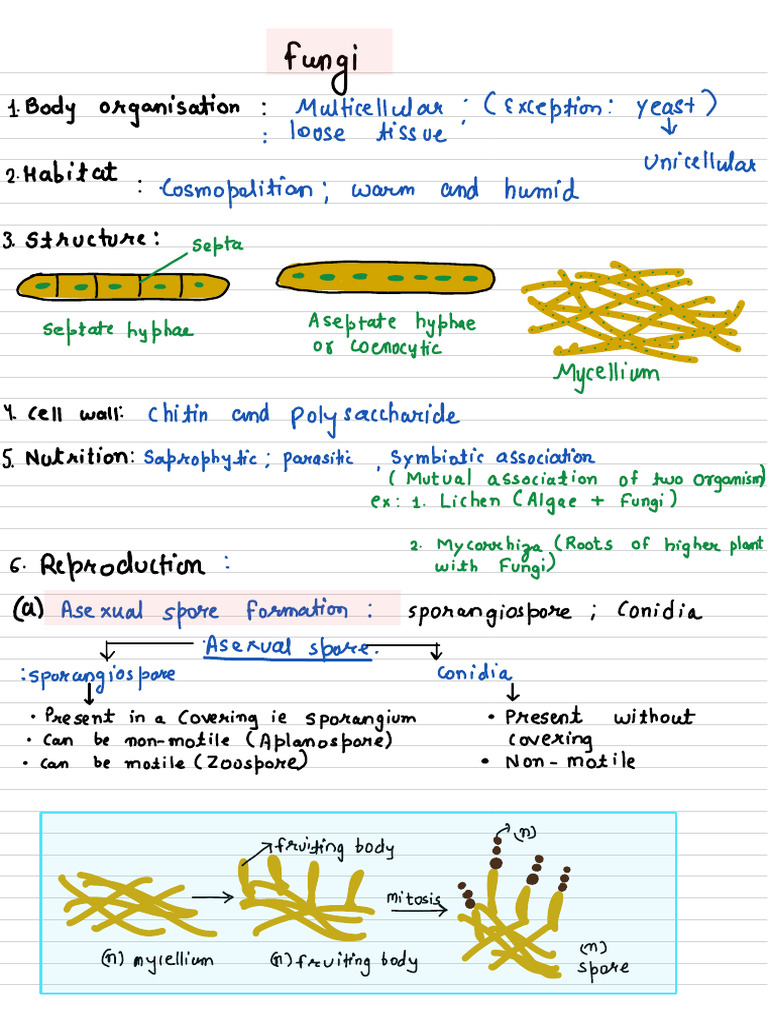 Fungi
1. Body organisation : Multicellular ; (Exception: yeast)
: loose tissue
Unicellular
2. Habitat : Cosmopolition; warm and humid
3. Structure:
Septa
Septate hyphae
Aseptate hyphae
or coenocytic
Mycellium
4. Cell wall: Chitin and polysaccharide
5. Nutrition: Saprophytic ; parasitic , Symbiotic association
(Mutual association of two organism)
ex: 1. Lichen (Algae + Fungi)
2. Mycorrhiza (Roots of higher plant
with Fungi)
6. Reproduction :
(a) Asexual spore formation : sporangiospore ; Conidia
Asexual spore.
:sporangiospore
Conidia
• Present in a covering ie sporangium
• Can be non-motile (Aplanospore)
• can be motile (Zoospore)
• Present without
covering
• Non-motile
fruiting body
(n)
mitosis
(n) mycellium
(n) fruiting body
(n)
spore